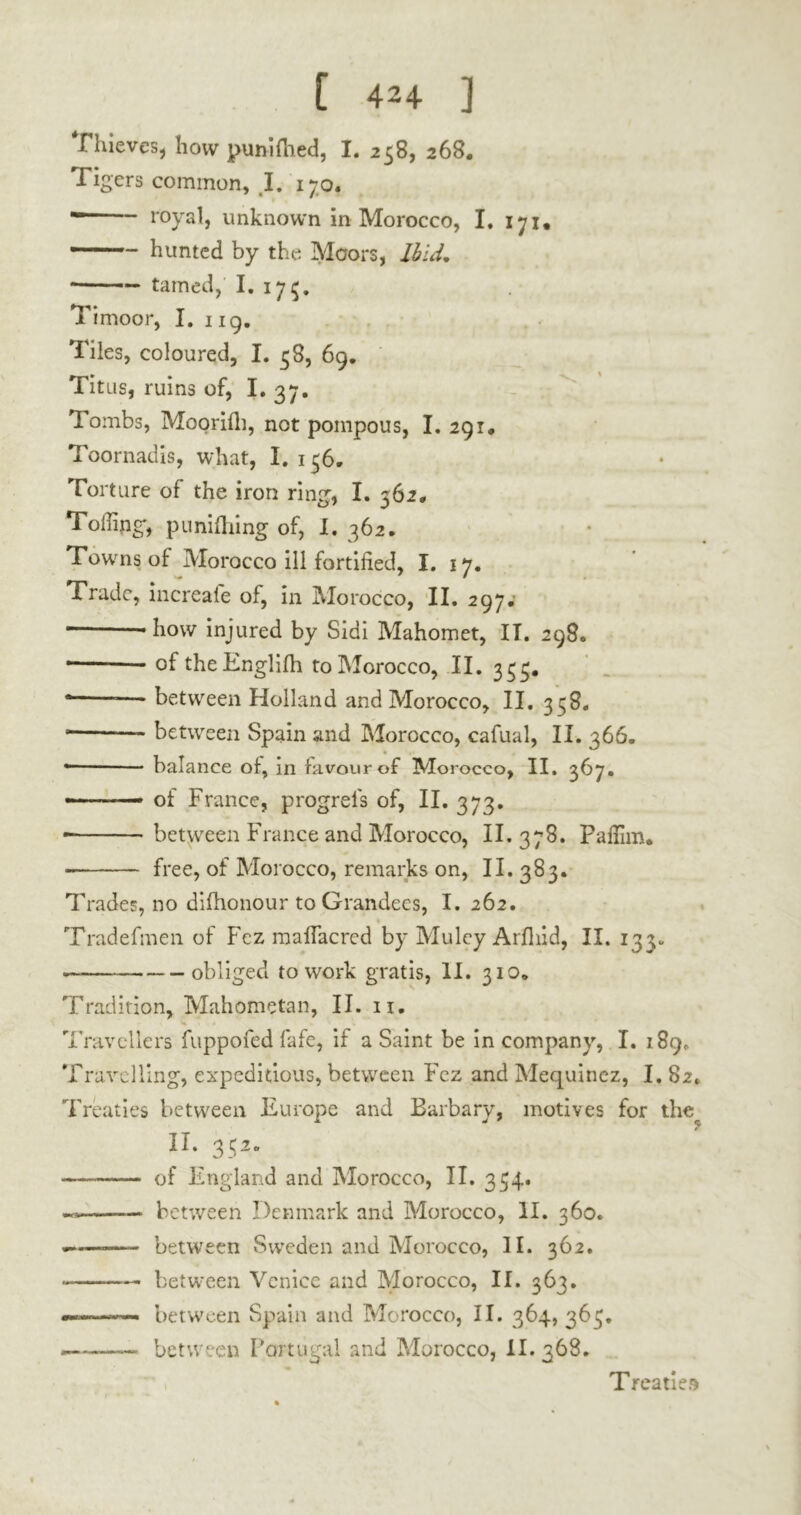 [ 424 ]
Thieves, how puniſhed, I. 258, 268.
Tigers common, I. 170.
—— royal, unknown in Morocco, I. 171.
—— hunted by the Moors, Ibid.
—— tamed, I. 175.
Timoor, I. 119.
Tiles, coloured, I. 58, 69.
Titus, ruins of, I. 37.
Tombs, Mooriſh, not pompous, I. 291.
Toornadis, what, I. 156.
Torture of the iron ring, I. 362.
Toſſing, puniſhing of, I. 362.
Towns of Morocco ill fortified, I. 17.
Trade, increaſe of, in Morocco, II. 297.
—— how injured by Sidi Mahomet, II. 298.
—— of the Engliſh to Morocco, II. 355.
—— between Holland and Morocco, II. 358.
—— between Spain and Morocco, caſual, II. 366.
—— balance of, in favour of Morocco, II. 367.
—— of France, progreſs of, II. 373.
—— between France and Morocco, II. 378. Paſſim.
—— free, of Morocco, remarks on, II. 383.
Trades, no diſhonour to Grandees, I. 262.
Tradeſmen of Fez maſſacred by Muley Arſhid, II. 133.
—— obliged to work gratis, II. 310.
Tradition, Mahometan, II. 11.
Travellers ſuppoſed ſafe, if a Saint be in company, I. 189.
Travelling, expeditious, between Fez and Mequinez, I. 82.
Treaties between Europe and Barbary, motives for the,
II. 352.
—— of England and Morocco, II. 354.
—— between Denmark and Morocco, II. 360.
—— between Sweden and Morocco, II. 362.
—— between Venice and Morocco, II. 363.
—— between Spain and Morocco, II. 364, 365.
—— between Portugal and Morocco, II. 368.
Treaties